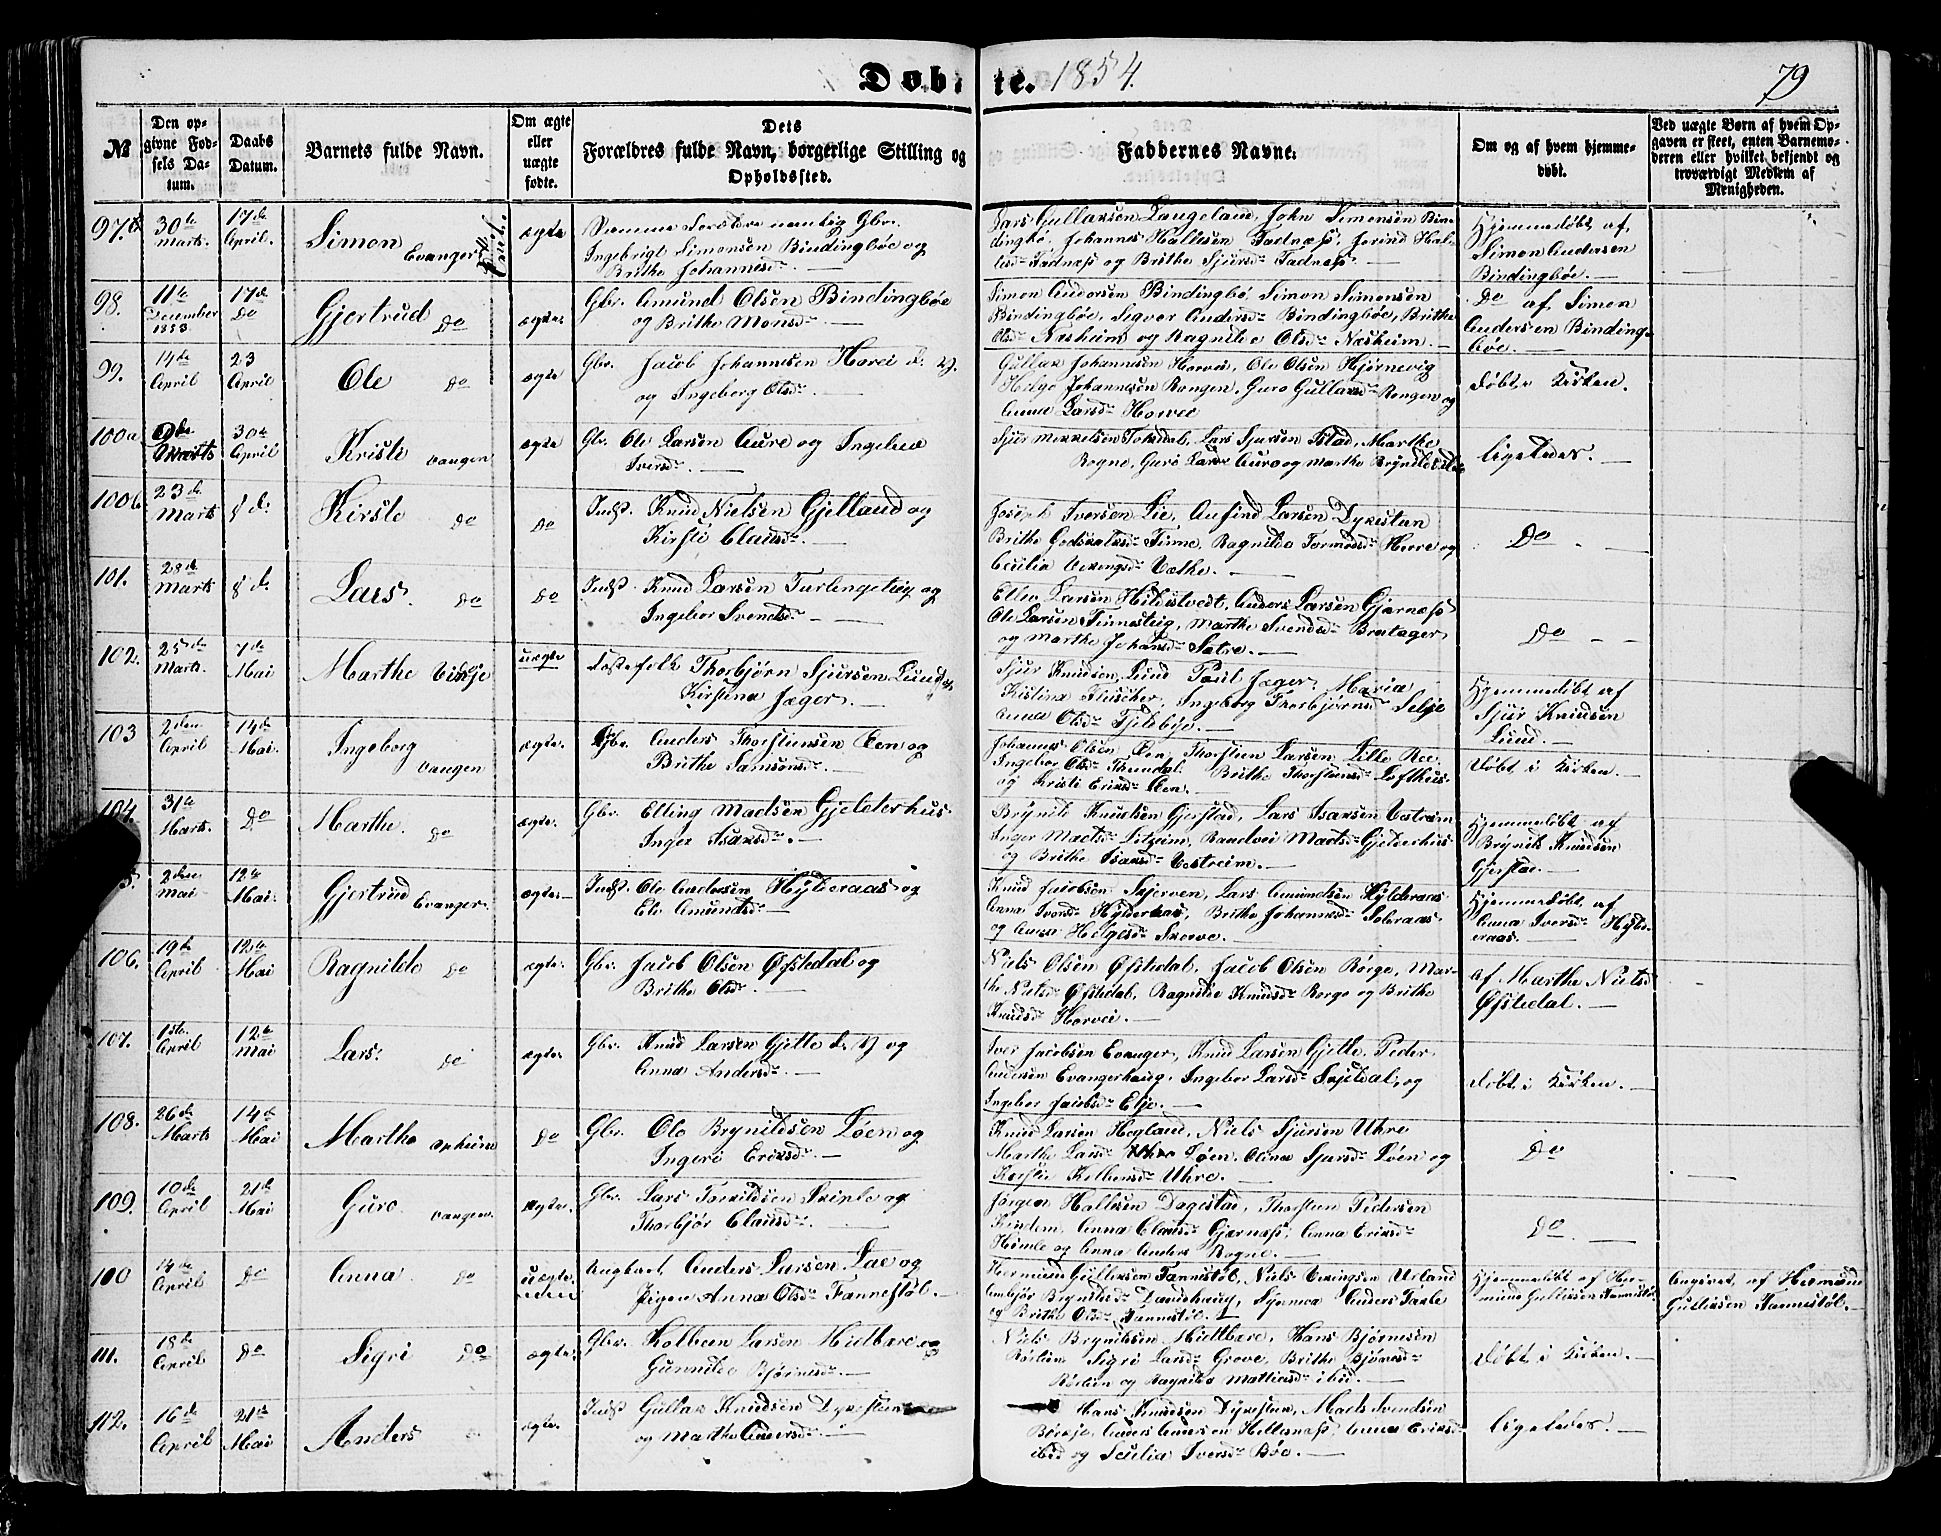 Døbte. 1854.
79
№
Den opgivne Fødsels Datum.
Daabs Datum.
Barnets fulde Navn.
Om ægte eller uægte fødte.
Dets Forældres fulde Navn, borgerlige Stilling og Opholdssted.
Faddernes Navne.
Om og af hvem hjemmedøbt.
Ved uægte Børn af hvem Opgaven er skeet, enten Barnemoderen eller hvilket bekjendt og troværdigt Medlem af Menigheden.
97.b 30te Marts. 17de April. Simon Evanger ægte
Samme Forældre nemlig Gbr.
Ingebrigt Simonsen Bindingbøe og
Brithe Johannesd.
Lars Gullaksen Langeland, John Simonsen Bin-
dingbø, Johannes Hallesen Fadnæss, Jorind Hal-
lesd. Fadnæss og Brithe Sjursd. Fadnæss.
Hjemmedøbt af
Simon Andersen
Bindingbøe.
98. 11te December 1853 17de Do Gjertrud Do ægte.
Gbr. Amund Olsen Bindingbøe
og Brithe Monsd.
Simon Andersen Bindingbø, Simon Simonsen
Bindingbøe, Sigver Andersd. Bindingbøe, Brithe
Olsd. Næsheim og Ragnilde Olsd. Næsheim.
Do af Simon
Andersen Binding-
bøe.
99. 14de April 23 April Ole Do ægte
Gbr. Jacob Johannesen Horvei
og Ingeborg Olsd.
Gullak Johannesen Horvei, Ole Olsen Hjørnevig
Helge Johannesen Rongen, Guro Gullaksd. Rongen og
Anna Larsd. Horvei
Døbt i Kirken.
100a Marts 30te April Kristi Vangen ægte
Gbr. Ole Larsen Aure og Ingebor
Iversd.
Sjur Mikkelsen Tokdal, Lars Sjursen Istad, Marthe
Rogne, Guro Larsd. Aure og Marthe Brynildsd.
ligeledes.
100b 23de Marts d. Kirste Do Do
Indst. Knud Nielsen Gjelland og
Kirsti Clausd.
Joseph Iversen Lie, Anfind Larsen Dykesten
Brithe Godskalksd. Finne, Ragnilde Tormodsd. Herre og
Cecilia Vikingsd. Væthe.
Do
101. 28de Marts d. Lars Do Do
Indst. Knud Larsen Furlengehøy og
Ingebor Svendsd.
Ellev Larsen Hildistvedt, Anders Larsen Gjernæss
Ole Larsen Finnesteig, Marthe Svendsd. Bratager
og Marthe Johansd. Sætre.
Do
102. 25de Marts. 7de Mai Marthe Vinje uægte
Løstefolk Thorbjørn Sjursen Lund og
Kirstina Jæger.
Sjur Knudsen Lund Poul Jæger, Maria
Kistina Fleischer, Ingeborg Thorbjørnsd. Selje
Anna Olsd. Tjelsbye.
Hjemmedøbt af
Sjur Knudsen
Lund.
103 2den April 14de Mai. Ingeborg Vangen ægte.
Gbr. Anders Thorstensen Øen og
Brithe Samsonsd.
Johannes Olsen Øen, Thorsten Larsen Lille Ree
Ingebor Olsd. Brithe Thorstensd. Lofthus
og Kristi Eriksd. Øen.
Døbt i Kirken.
104. 31te Marts. Do Marthe. Do ægte.
Gbr. Elling Madsen Gjelderhus
Inger Isaksd.
Brynild Knudsen Gjerstad, Lars Isaksen Vestrem
Inger Madsd. Ditzeim, Randvei Madsd. Gjelderhus
og Brithe Isaksd. Vestreim.
Hjemmedøbt af
Brynild Knudsen
Gjerstad.
2den Mai 12te Mai. Gjertrud Evanger. ægte.
Indst. Ole Andersen Hylderaas og
Eli Amundsd.
Knud Jacobsen Skjerven, Lars Amundsen Hylderaas
Anna Iversd. Hylderaas, Brithe Johannesd. Solaraas
og Anna Helgesd. Skorve.
Hjemmedøbt af
Anna Iversd. Hylde-
raas.
106. 19de April 12te Mai Ragnilde Do ægte.
Gbr. Jacob Olsen Øfstedal og
Brithe Olsd.
Niels Olsen Øfstedal, Jacob Olsen Børge, Mar-
the Nielsd. Øfstedal, Ragnilde Knudsd. Borge og Brithe
Knudsd. Horvei.
af Marthe Nielsd
Øfstedal.
107. 1ste April 12te Mai Lars. Do ægte.
Gbr. Knud Larsen Gjelle og
Anna Andersd.
Iver Jacobsen Evanger, Knud Larsen Gjelle, Peder
Andersen Evangerhaug, Ingebor Larsd. Skjeldal, og
Ingebor Jacobsd. Elje.
Døbt i Kirken.
108. 26de Marts 14de Mai Martha Opheim Do
Gbr. Ole Brynildsen Løen og
Ingeri Eriksd.
Knud Larsen Hegland, Niels Sjursen Uhre
Marthe Larsd. Løen, Anna Sjursd. Løen og
Kirsti Kolbensd. Uhre.
Do
109. 10de April 21de Mai Guro. Vangen. Ægte.
Gbr. Lars Torkildsen Skiple og
Thorbjør Clausd.
Jørgen Hallesen Dagestad, Thorsten Pedersen
Kindem, Anna Clausd. Gjernæss, Anna Eriksd.
Hømle og Anna Anders Rogne.
Do.
100 14de April Do Anna. Do uægte.
Ungkarl Anders Larsen Lae og
Pigen Anna Olsd. Fannestøl.
Hermund Gulleksen Fannestøl, Niels Vikingsen Urland
Ambjør Brynildsd. Landshaug, Synneva Anders
og Brithe Olsd. Fannestøl.
Hjemmedøbt af Her-
mund Gulleksen Fannestøl
Angivet af Hermund
Gulleksen Fannestøl.
111. 18de April Do Sigri Do ægte.
Gbr. Kolbeen Larsen Midtbære og
Gunnilde Bjørnesd.
Niels Brynildsen Midtbære, Hans Bjørnesen
Røelien Sigri Larsd. Grove, Brithe Bjørnesd.
Røelien og Ragnilda Mathiasd. ibid.
Døbt i Kirken.
112. 16de April 21de Mai Anders ægte.
Indst Gullak Knudsen Dykesten
og Marthe Andersd.
Hans Knudsen Dykesten, Mads Svendsen
Anders Andersen Hellesnæss, Anna Eriksd.
ibid og Sicilia Iversd. Bøe.
ligeledes.